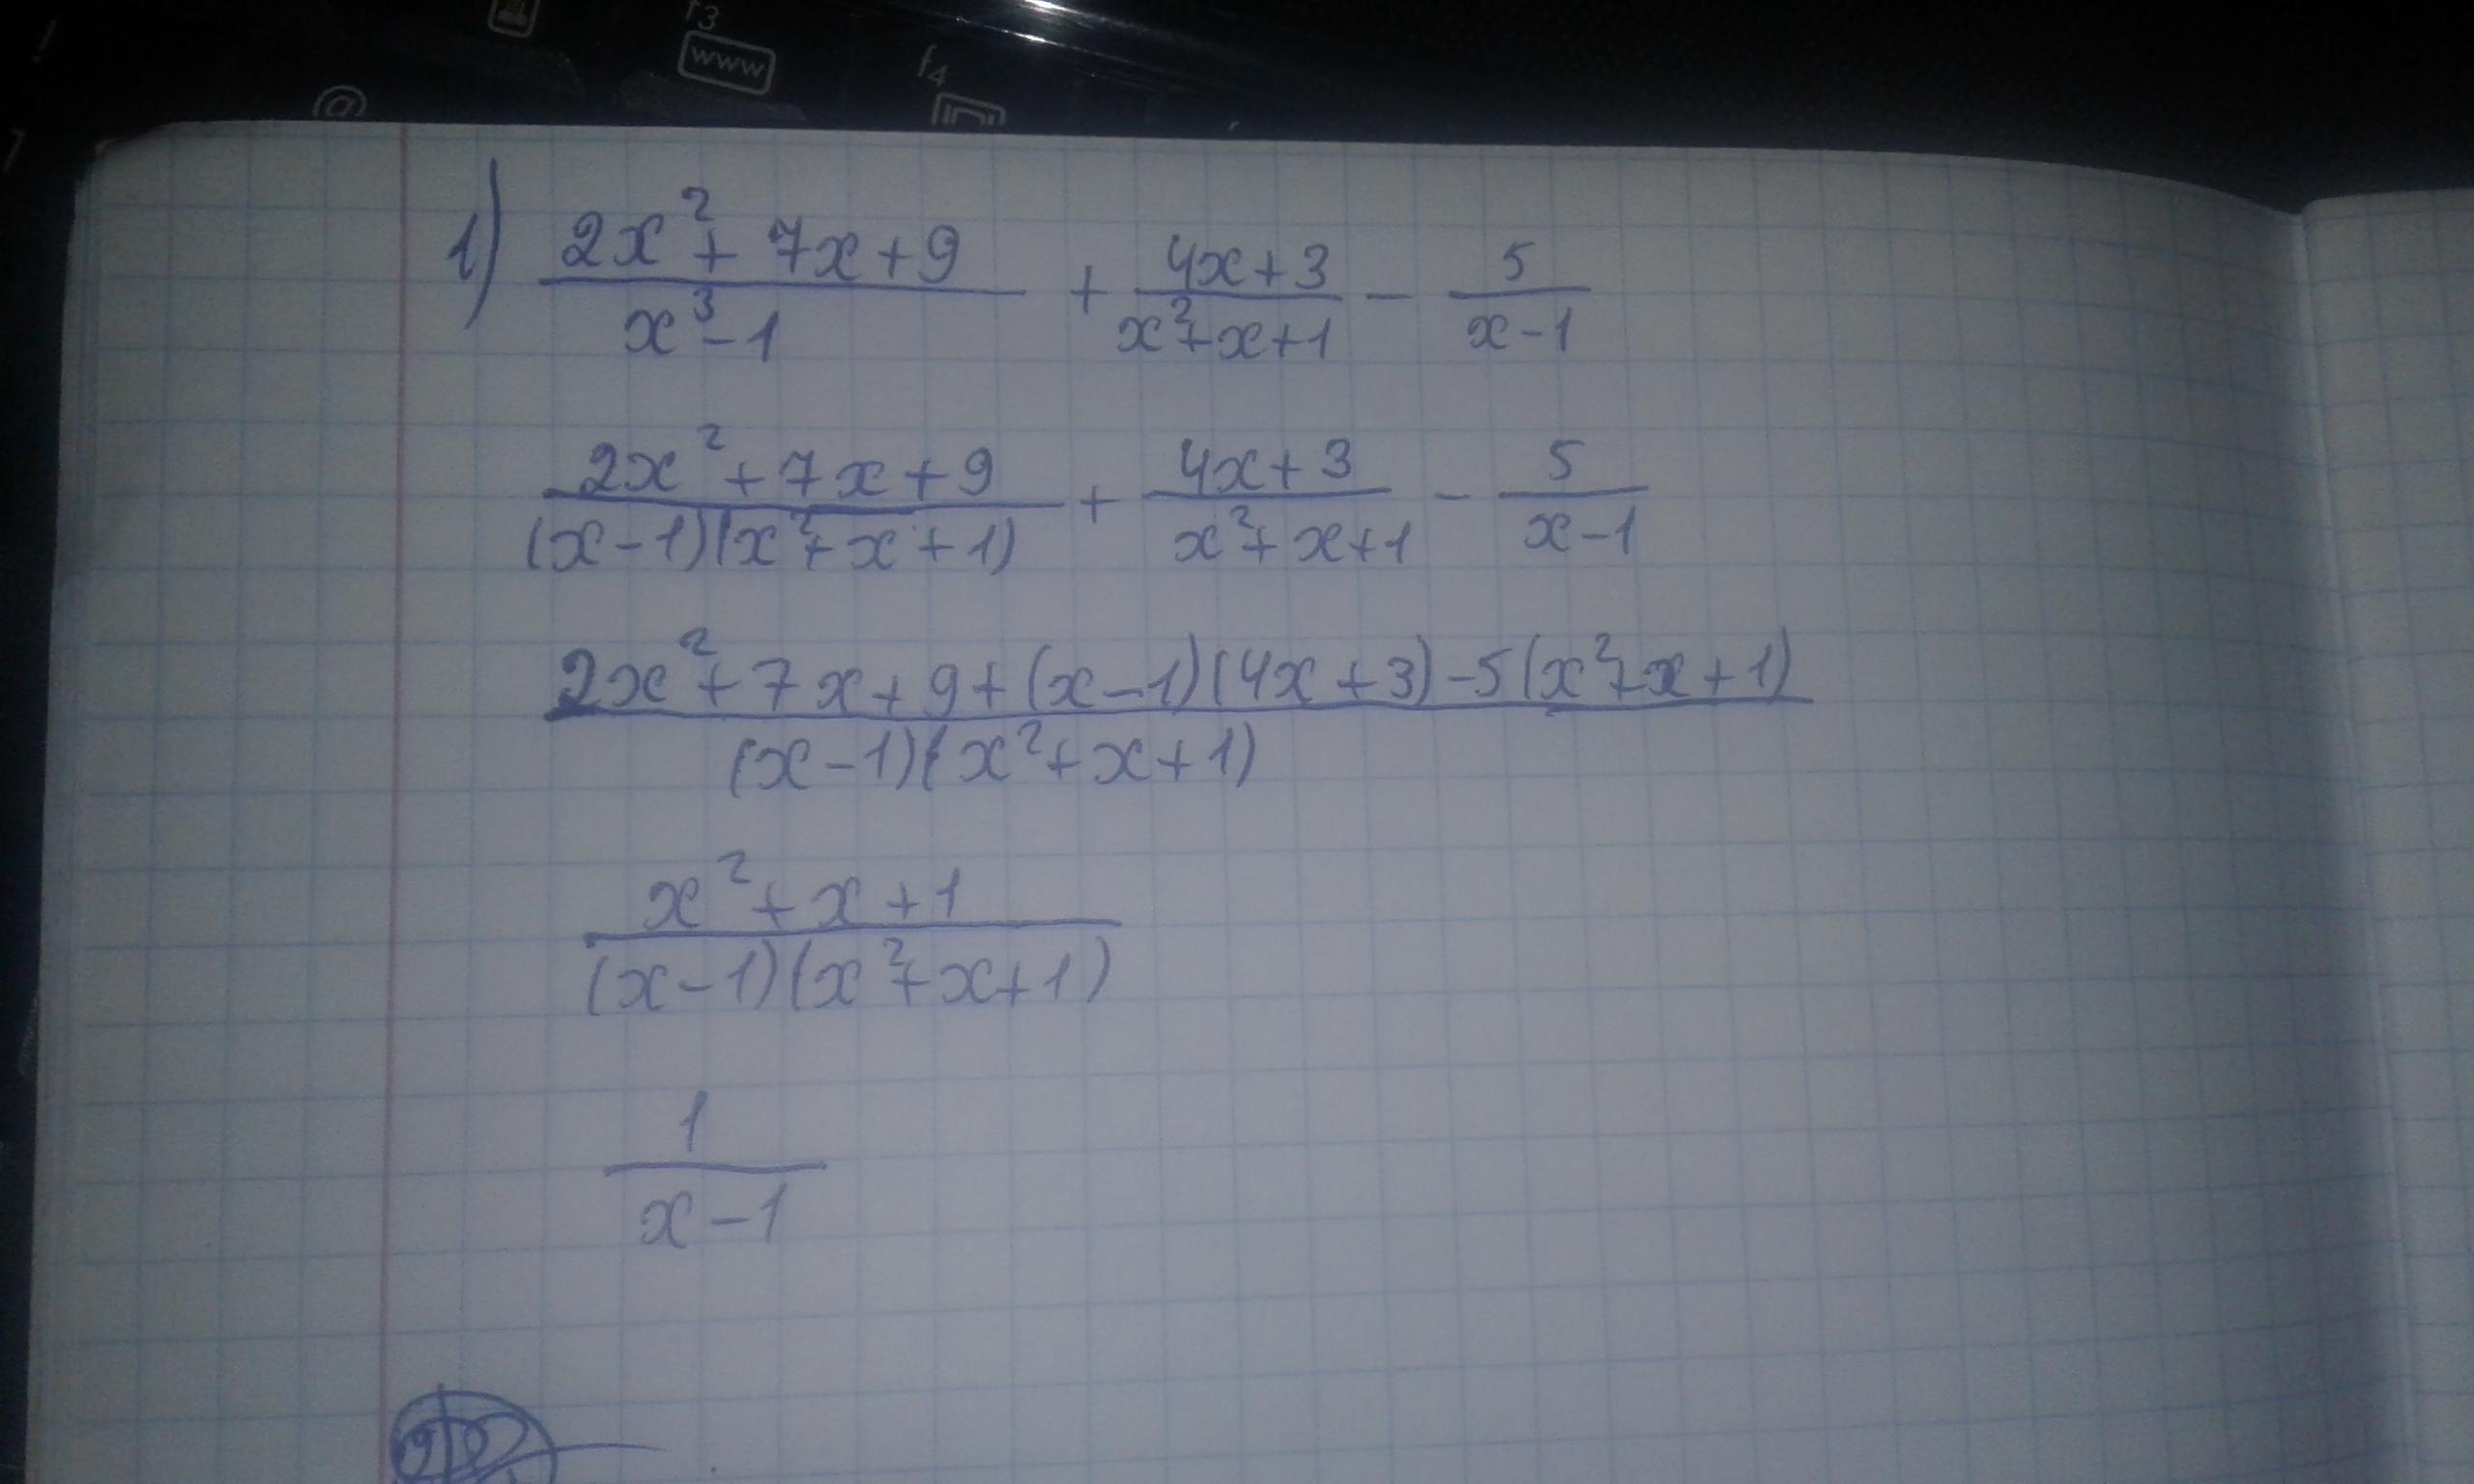 f3
www
f4
@
1) (2x²+7x+9)/(x³-1) + (4x+3)/(x²+x+1) - 5/(x-1)
(2x²+7x+9)/((x-1)(x²+x+1)) + (4x+3)/(x²+x+1) - 5/(x-1)
(2x²+7x+9+(x-1)(4x+3)-5(x²+x+1))/((x-1)(x²+x+1))
(x²+x+1)/((x-1)(x²+x+1))
1/(x-1)